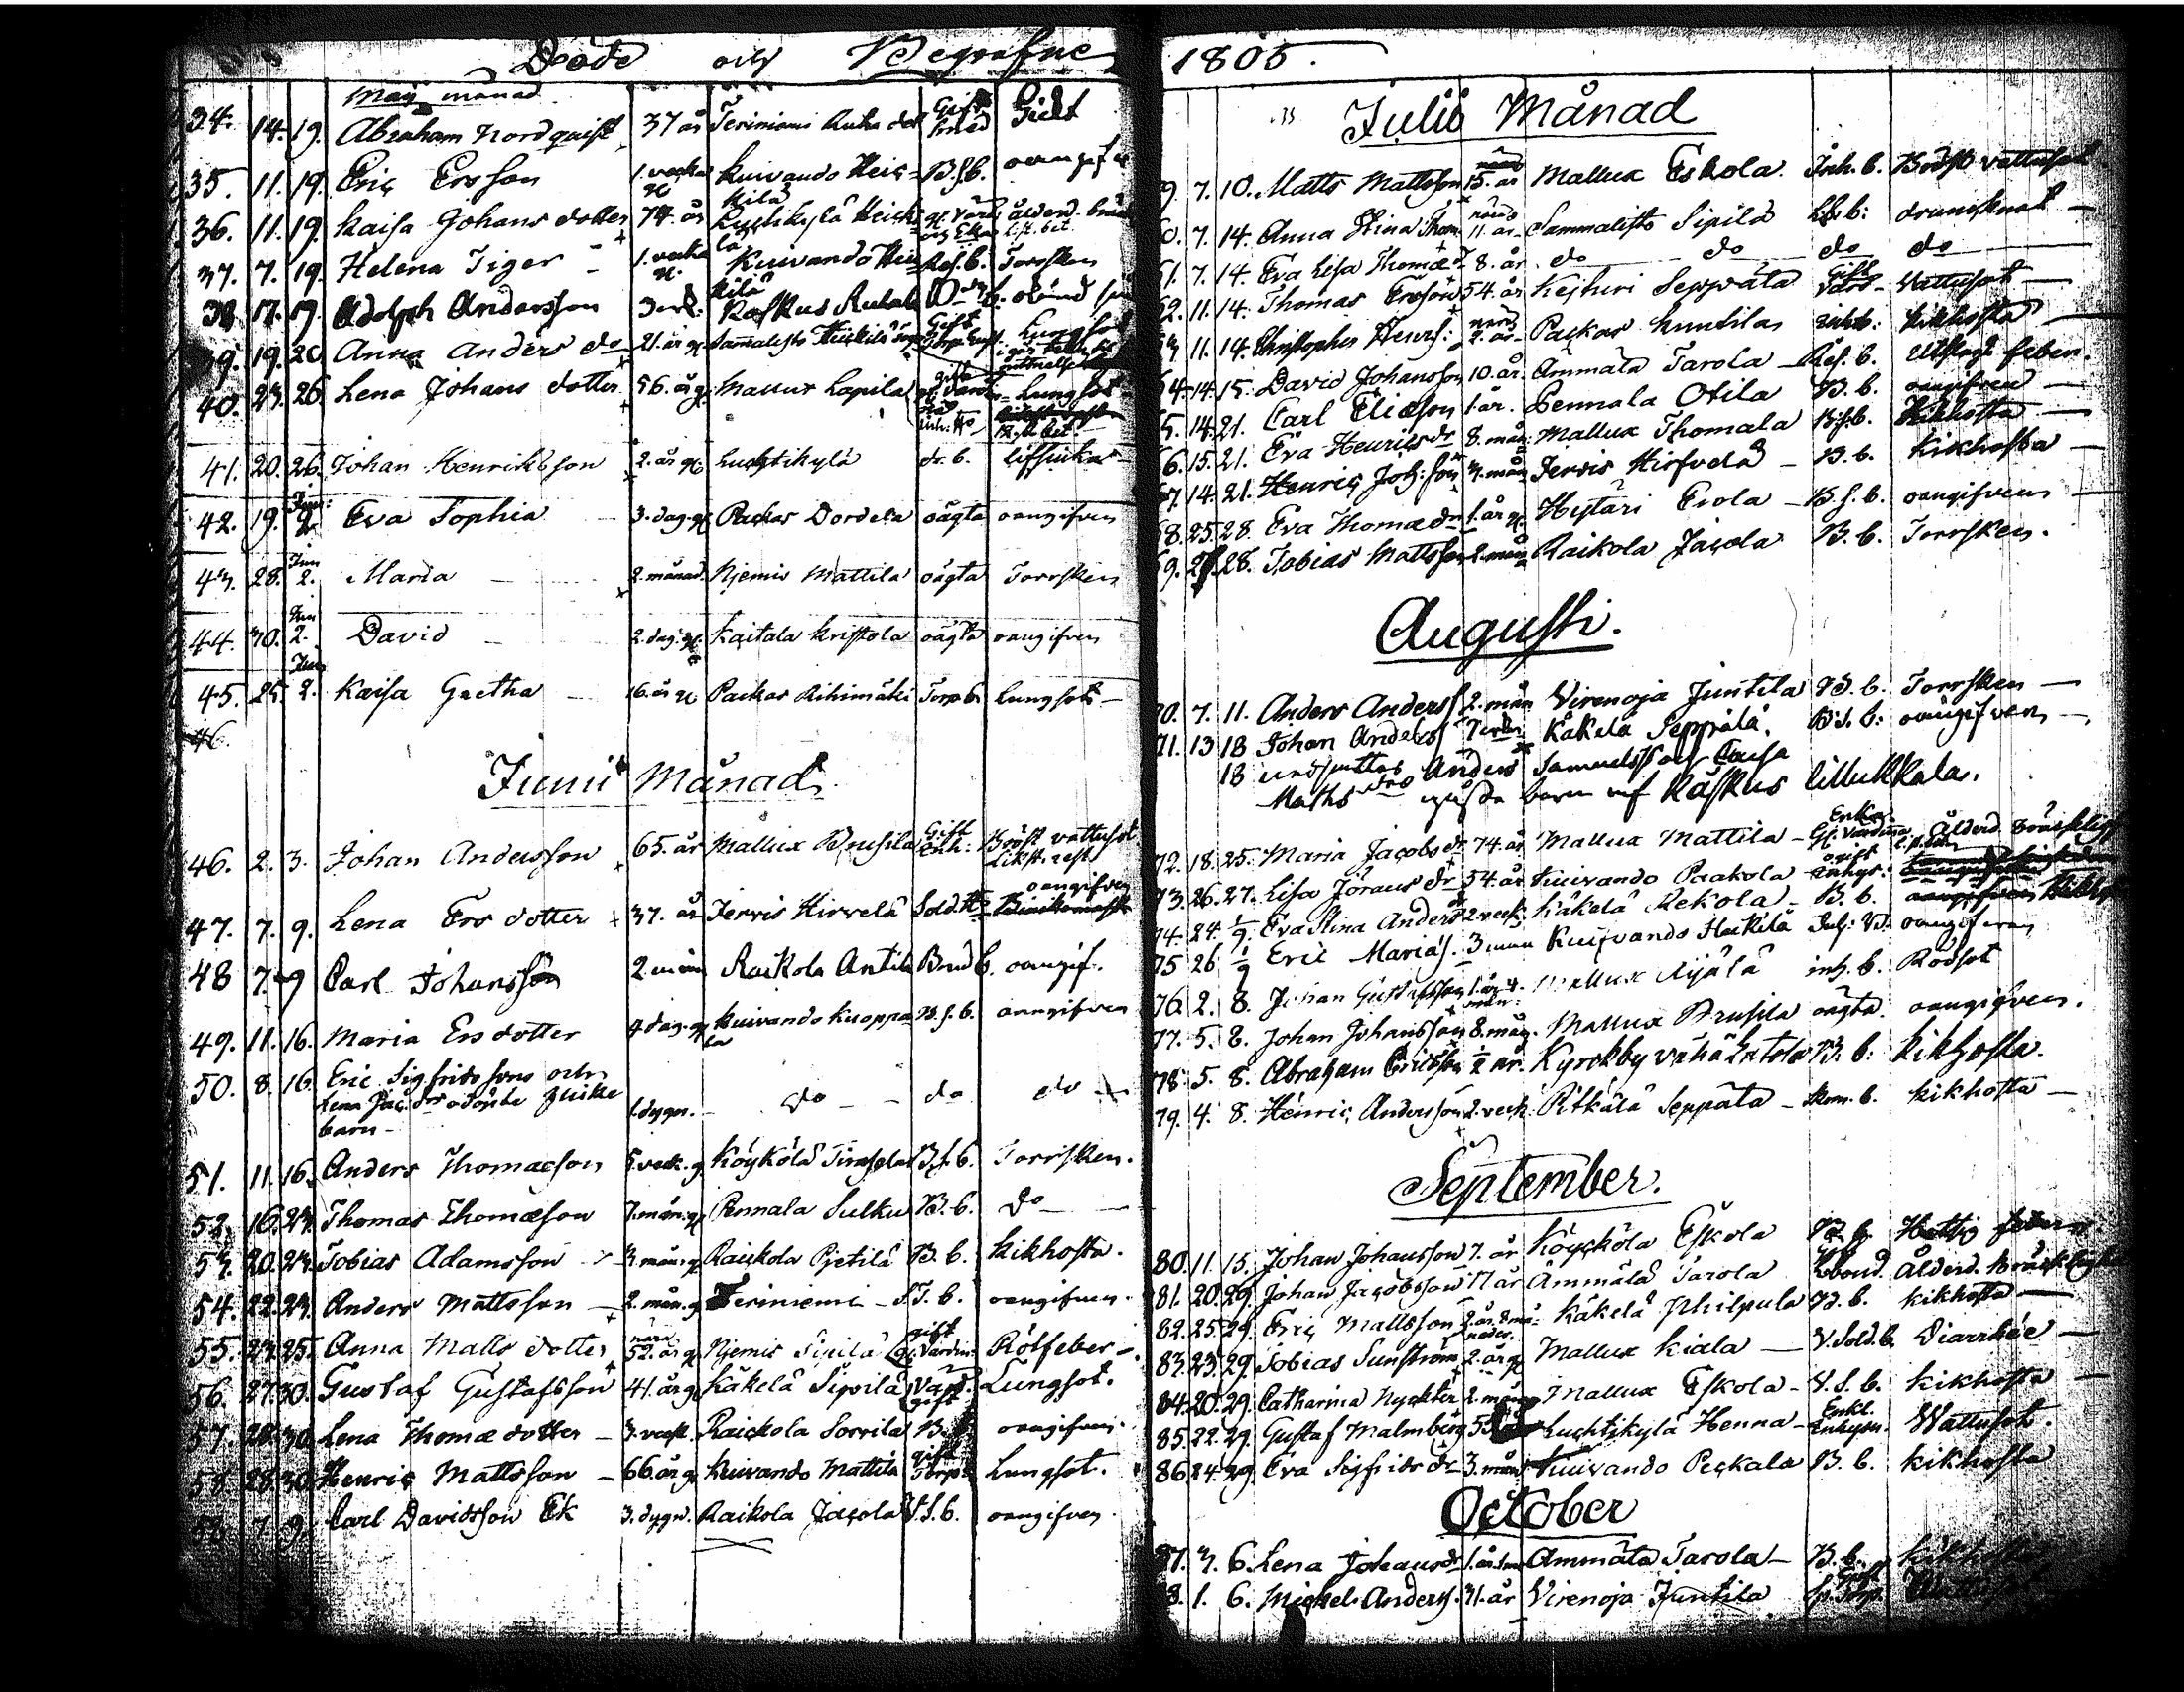 Döde och Begrafne
Maij månad
34. 14. 19. Abraham Nordquist 37 år Teriniemi Gift Gickt
35. 11. 19. Eric Ersson 1. vecka Kuivando Heic= B.s.b. oangifv
kilä
36. 11. 19. Kaisa Johans dotter 74. år Luchtikylä Heick
lä
37. 7. 19. Helena Tiger 1. vecka Kuivando Hei Torrsken
kilä
38. 17. 19. Adolph Andersson Kaskus
39. 19. 20. Anna Anders do 21. år Sammalisto Heickilä Gift Lungsot
40. 23. 26. Lena Johans dotter 56. år Mallux Lapila Lungsot
41. 20. 26. Johan Henriksson 2. år Luchtikylä dr. b.
Jun:
42. 19. 2. Eva Sophia 3. dag. Packas Dordela oägta oangifven
Jun
43. 28. 2. Maria 2. månad. Njemis Mattila oägta Torrsken
Jun
44. 30. 2. David 2. dag. Kaitala Kristola oägta oangifven
Jun
45. 25. 2. Kaisa Gretha 16. år Paickas Rihimäki Torp b. Lungsot
46.
Junii Månad
46. 2. 3. Johan Andersson 65. år Mallux Brusila Gift Inh: Bröst vattusot
47. 7. 9. Lena Ers dotter 37. år Jervis Hirvelä Sold. oangifven
48 7. 9 Carl Johansson 2 mån Raikola Antila Bond b. oangif.
49. 11. 16. Maria Ers dotter dag. Kuivando Kuoppa= B.s.b. oangifven
la
50. 8. 16. Eric Sigfridssons och
Lena Jac. dr odöpte Flicke
barn 1. dygn. do do do
51. 11. 16. Anders Thomæson 5. veck. Köyköla B.s.b. Torrsken.
52. 16. 23. Thomas Thomæson 7. mån. Pennala Sulku B.b. do
53. 20. 23. Tobias Adamsson 3. mån. Raickola Pjetilä B.b. Kikhosta.
54. 22. 23. Anders Mattsson 2. mån. Teriniemi S.T.b. oangifven.
55. 23. 25. Anna Matts dotter 52. år Njemis Sipilä gift Värdin. Rötfeber
56. 27. 30. Gustaf Gustafsson 41. år Käkelä Sipilä Värd. Lungsot.
gift
57. 28. 30. Lena Thomæ dotter 3. veck. Raickola Sorrila B. oangifven.
58. 28. 30. Henric Mattsson 66. år Kuivando Mattila gift Torp Lungsot.
59. 7. 9. Carl Davidsson Ek 3. dygn. Raikola Jacola S.b. oangifven.
1805.
Julii Månad
9. 7. 10. Matts Mattsson 15. år Mallux Eskola. Inh. b. Bröst vattusot
0. 7. 14. Anna Stina Thom 11. år Sammalisto Sipilä b: drunknat
61. 7. 14. Eva Lisa Thomæ dr 8. år do do do do
62. 11. 14. Thomas Ersson 54. år Kejhuri Seppälä Gift Värd Vattusot
11. 14. Christopher Henrs: 2. år Packas Kuntilas inh b: kikhosta
64. 14. 15. David Johansson 10. år Ämmälä Tarola Ref. b. Utslags feber.
5. 14. 21. Carl Eliæson 1. år. Pennala Otila B. b. oangifven
6. 15. 21. Eva Henrics dr 8. mån: Mallux Thomala B.s.b. Kikhosta
67. 14. 21. Henric Joh: son 3. mån Jervis Hirfvelä B. b. kikhosta
68. 25. 28. Eva Thomæ dr 1. år Hytäri Erola B.s.b. oangifven
69. 28. Tobias Mattsson 2. mån Raikola Jacola B. b. Torrsken.
Augusti.
70. 7. 11. Anders Anders 2. mån Virenoja Juntila B. b. Torrsken
71. 13 18 Johan Anders Käkelä Seppälä. B.s.b: oangifven
18 undsattes Anders Samuels och Caisa
Maths dros barn uf Kaskus Lillukkala.
72. 18. 25. Maria Jacobs dr 74. år Mallux Mattila Enka Gl. Värdinna Ålderd. bräcklig
73. 26. 27. Lisa Jörans dr 54. år Kuivando Paakola ogift Inhys:
74. 24. 1/9. Eva Stina Anders dr 2. veck. Käkelä Rekola B. b.
75 26 1/9 Eric Marias s. 3 mån Kuivando Heikilä oangifven
76. 2. 8. Johan Gustafsson 1. år 4. mån: Mallux Äijälä inh. b. Rödsot
77. 5. 8. Johan Johansson 8. mån. Mallux Brusila oägta. oangifven.
78 5. 8. Abraham Ericsson ½ år. Kyrckby vähä Eutola B. b: kikhosta.
79. 4. 8. Henric Andersson 2. veck. Pitkälä Seppälä b. kikhosta
September.
80. 11. 15. Johan Johansson 7. år Köycköla Eskola B. b. Hettig feber
81. 20. 29. Johan Jacobsson 77 år Ämmälä Tarola Ålderd. Bräckligh
82. 25. 29. Eric Mattsson 2. år. 8 må= nader. Käkelä Philpula B. b. kikhosta
83. 23. 29. Tobias Sunström 2. år Mallux Kiala V. Sold. b. Diarrhée
84. 20. 29. Catharina Nyckter 2. mån Mallux Eskola V. S. b. kikhosta
85. 22. 29. Gustaf Malmberg 55 Luchtikylä Henna Enkl. Inhysn. Wattusot.
86. 24. 29. Eva Sigfrids dr 3. mån Kuivando Peckala B. b. kikhosta
October
87. 3. 6. Lena Johans dr 1. år Ammälä Tarola B. b.
8. 1. 6. Michel Anders. 71. år Virenoja Juntila